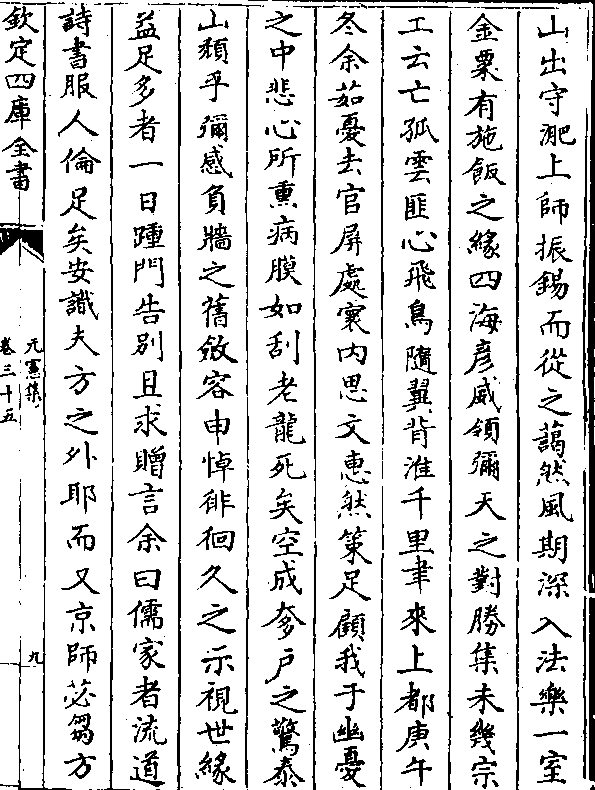 山出守淝上師振錫而從之藹然風期深入法樂一室
金粟有施飯之緣四海彦威領彌天之對勝集未幾宗
工云亡孤雲匪心飛鳥隨翼背淮千里聿來上都庚午
冬余茹憂去官屏處寰内思文惠然策足顧我于幽憂
之中悲心所熏病膜如刮老龍死矣空成奓户之驚泰
山頽乎彌感負牆之舊斂容申悼徘徊久之示視世緣
益足多者一日踵門告别且求贈言余曰儒家者流道
詩書服人倫足矣安識夫方之外耶而又京師苾芻方
欽定四庫全書
元憲集
卷三十五
九